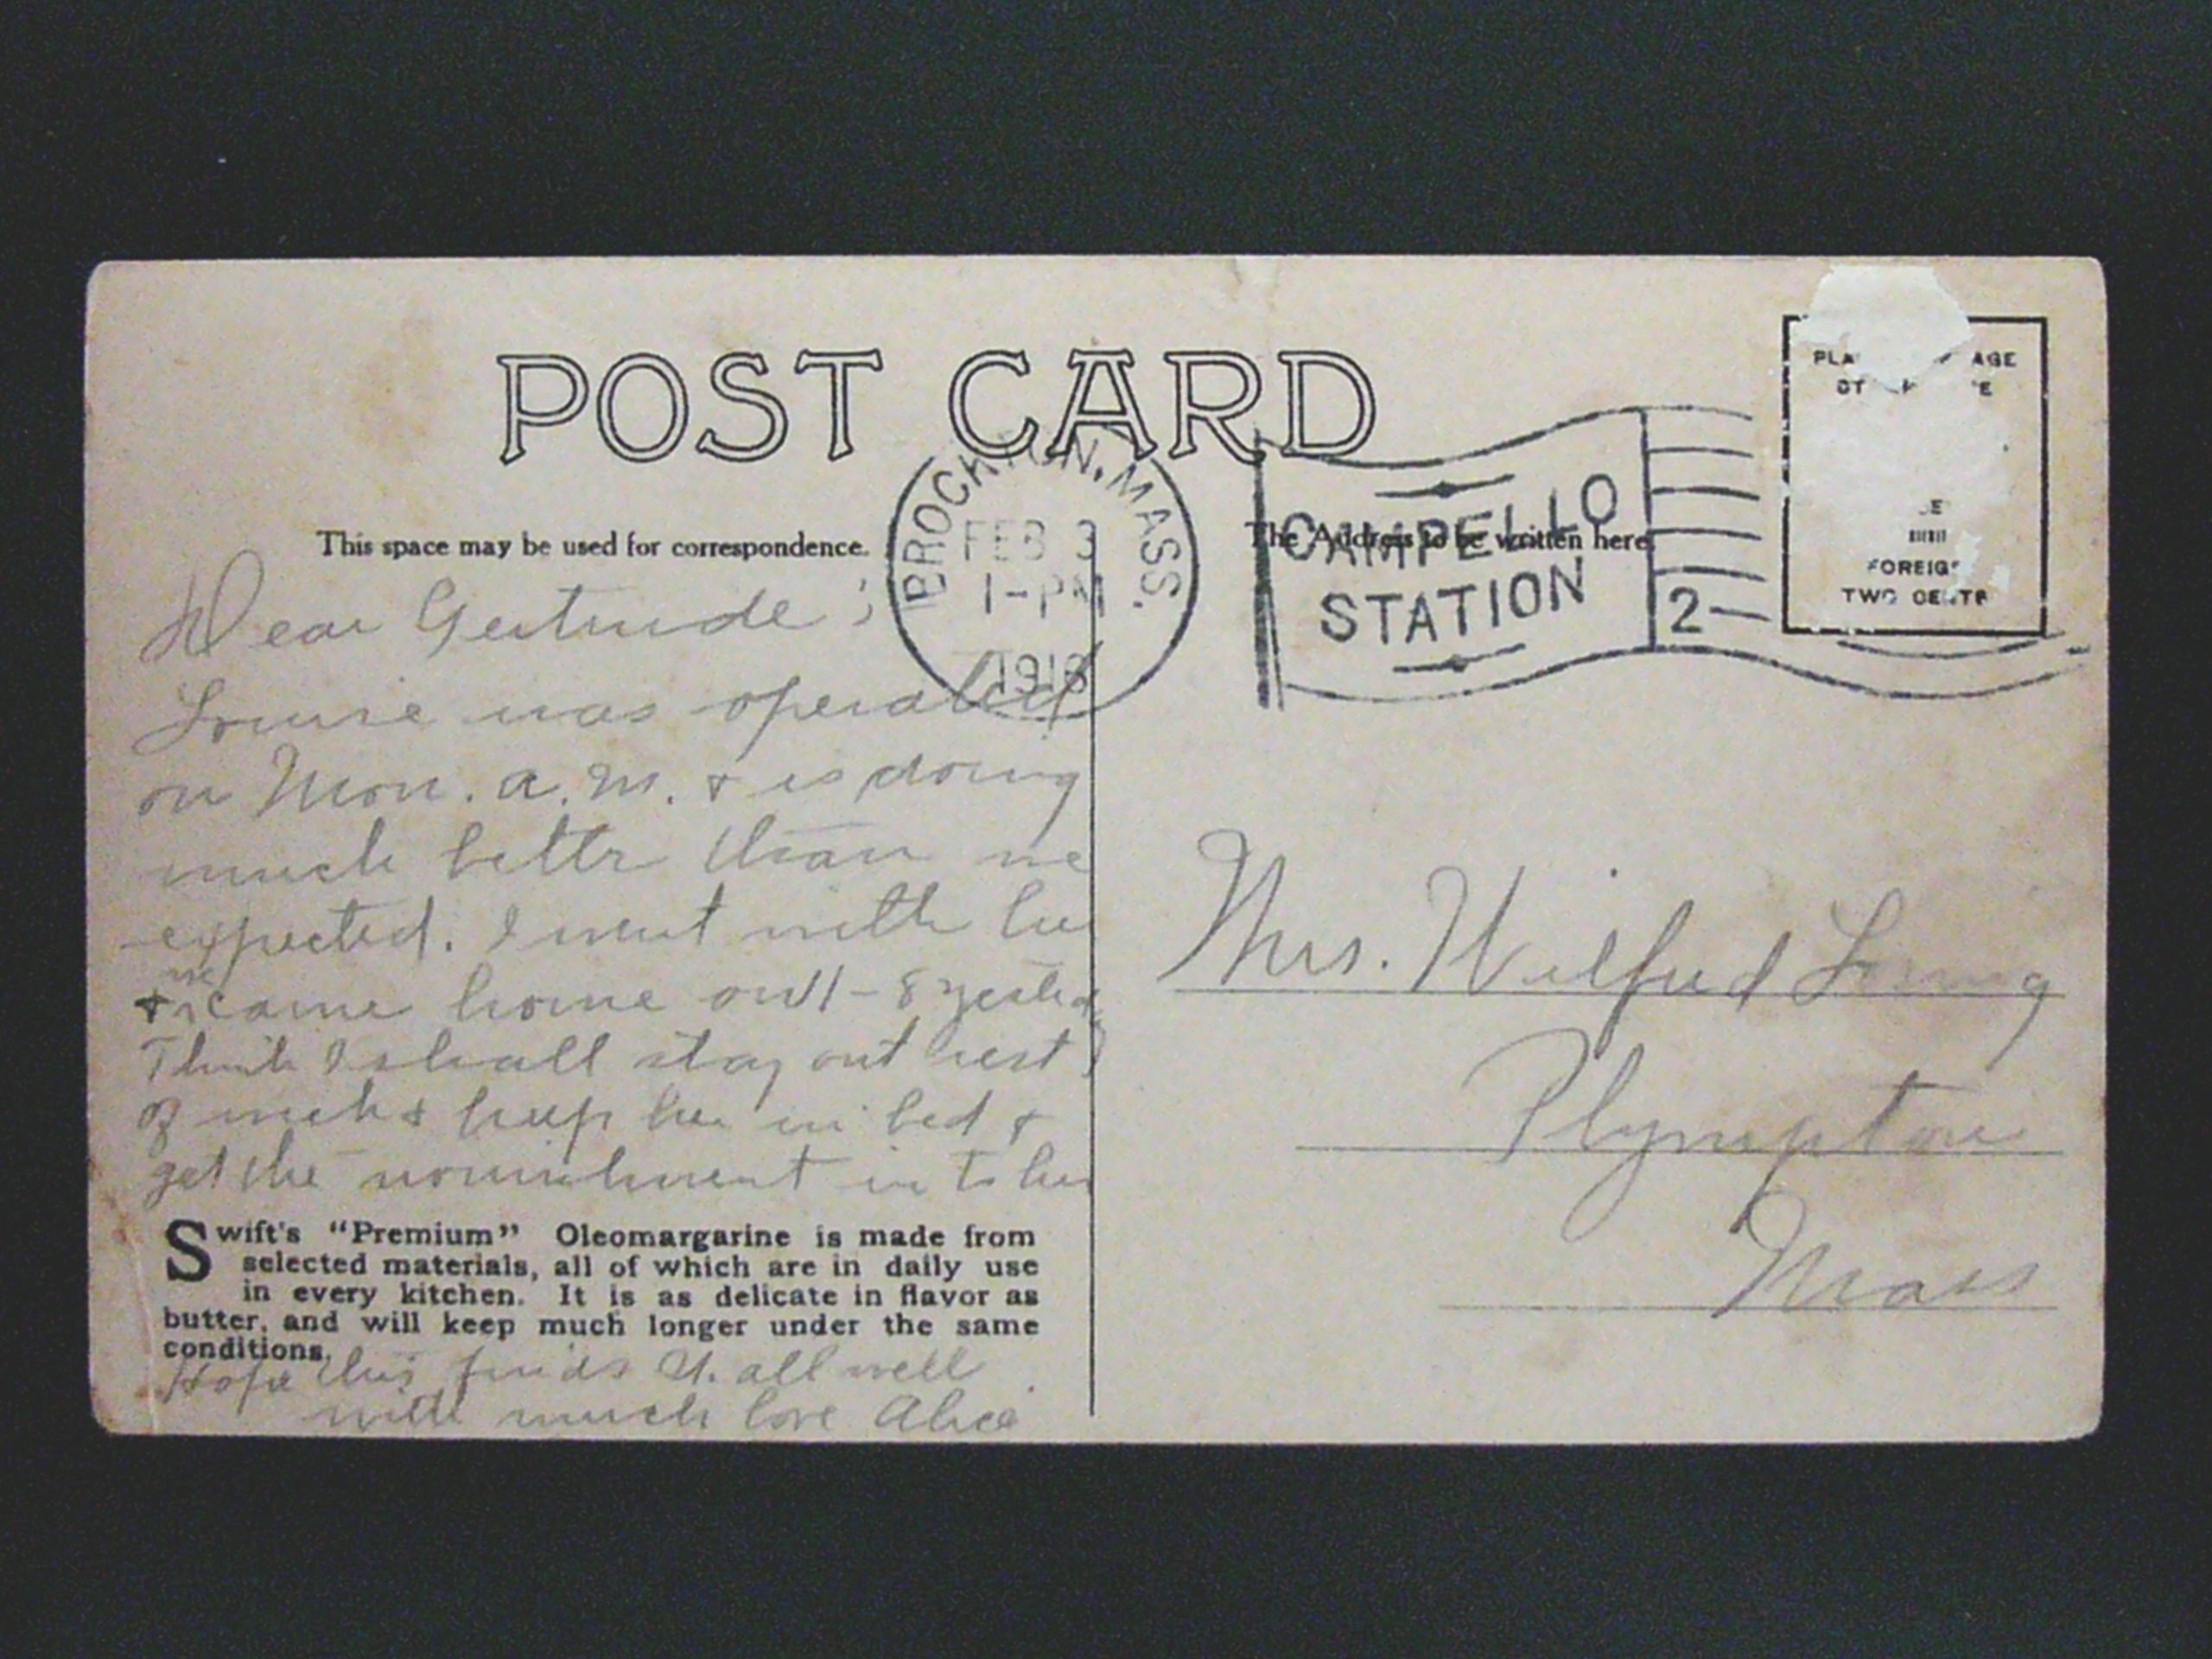 POST CARD
BROCKTON, MASS.
FEB 3
1-PM
191
CAMPELLO
STATION
2
PLA AGE
E
FOREIG
TWO CENTS
This space may be used for correspondence.
The Address to be written here
Dear Gertrude ;
Louise was operated
on Mon. a.m. & is doing
much bettr than we
expected. I went with her
& we came home on 1-8
Think I shall stay out rest
of week & keep her in bed &
get the nourishment in to her
Swift's "Premium" Oleomargarine is made from
selected materials, all of which are in daily use
in every kitchen. It is as delicate in flavor as
butter, and will keep much longer under the same
conditions.
Hope this finds U. all well
with much love Alice
Mrs. Wilfred Loring
Plympton
Mass